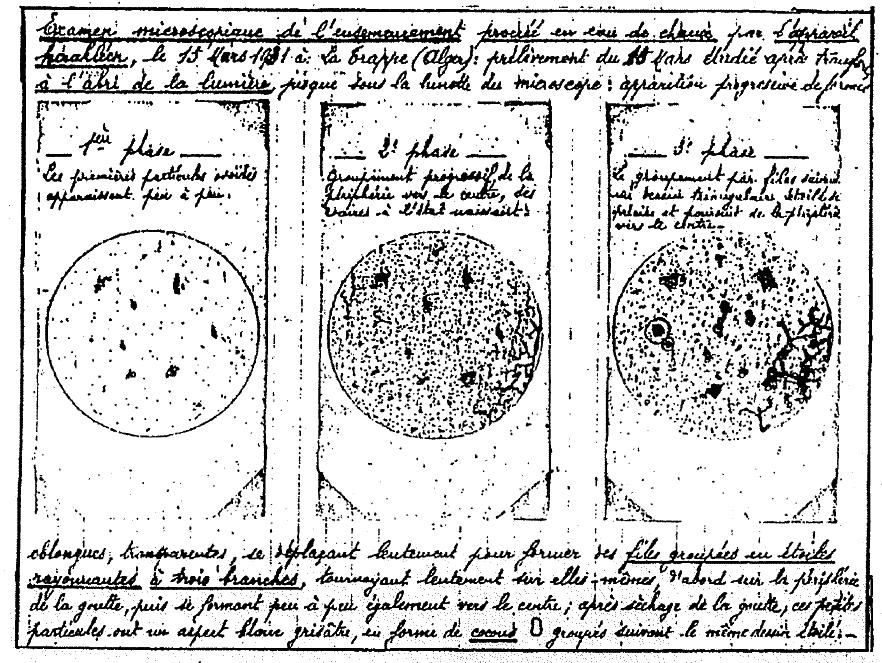 Examen microscopique de l'ensemencement procédé en eau de chaux par l'appareil
le 15 Mars 1931 à La Trappe (Alger): prélèvement du 15 Mars étudié après
à l'abri de la lumière jusque sous la lunette du microscope: apparition progressive de
1ère phase
Les premières particules ovoïdes
apparaissent peu à peu.
2e phase
Groupement progressif, de la
périphérie vers le centre, des
à l'état naissant:
3e phase
Le groupement par files
vers le centre
oblongues, transparentes, se déplaçant lentement pour former des files groupées en étoiles
rayonnantes à trois branches, tournoyant lentement sur elles-mêmes, d'abord sur la périphérie
de la goutte, puis se formant peu à peu également vers le centre; après séchage de la goutte, ces petites
particules ont un aspect blanc grisâtre, en forme de groupés suivant le même dessin étoilé.-